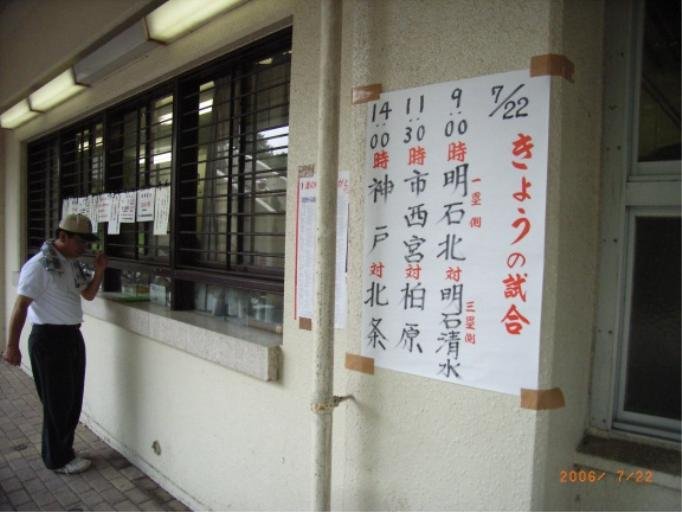 7/22
きょうの試合
9:00時 明石北 対 明石清水
一塁側 三塁側
11:30時 市西宮 対 柏原
14:00時 神戸 対 北条
2006/ 7/22